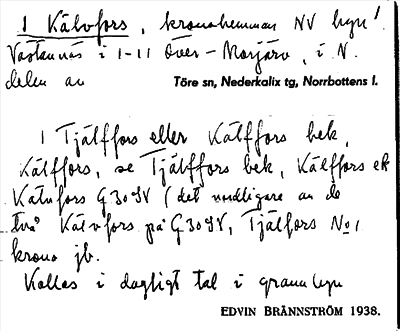 1 Kälvfors, kronohemman NV byn!
Västannäs i 1-11 Över-Morjärv, i N.
delen av Töre sn, Nederkalix tg, Norrbottens l.
1 Tjälffors eller Kälffors bek,
Kälffors, se Tjälffors bek, Kälffors ek
Kälvfors G 30 SV (det nordligare av de
två Kälvfors på G 30 SV, Tjälfors No 1
krono jb.
Kallas i dagligt tal i grannbyn
EDVIN BRÄNNSTRÖM 1938.